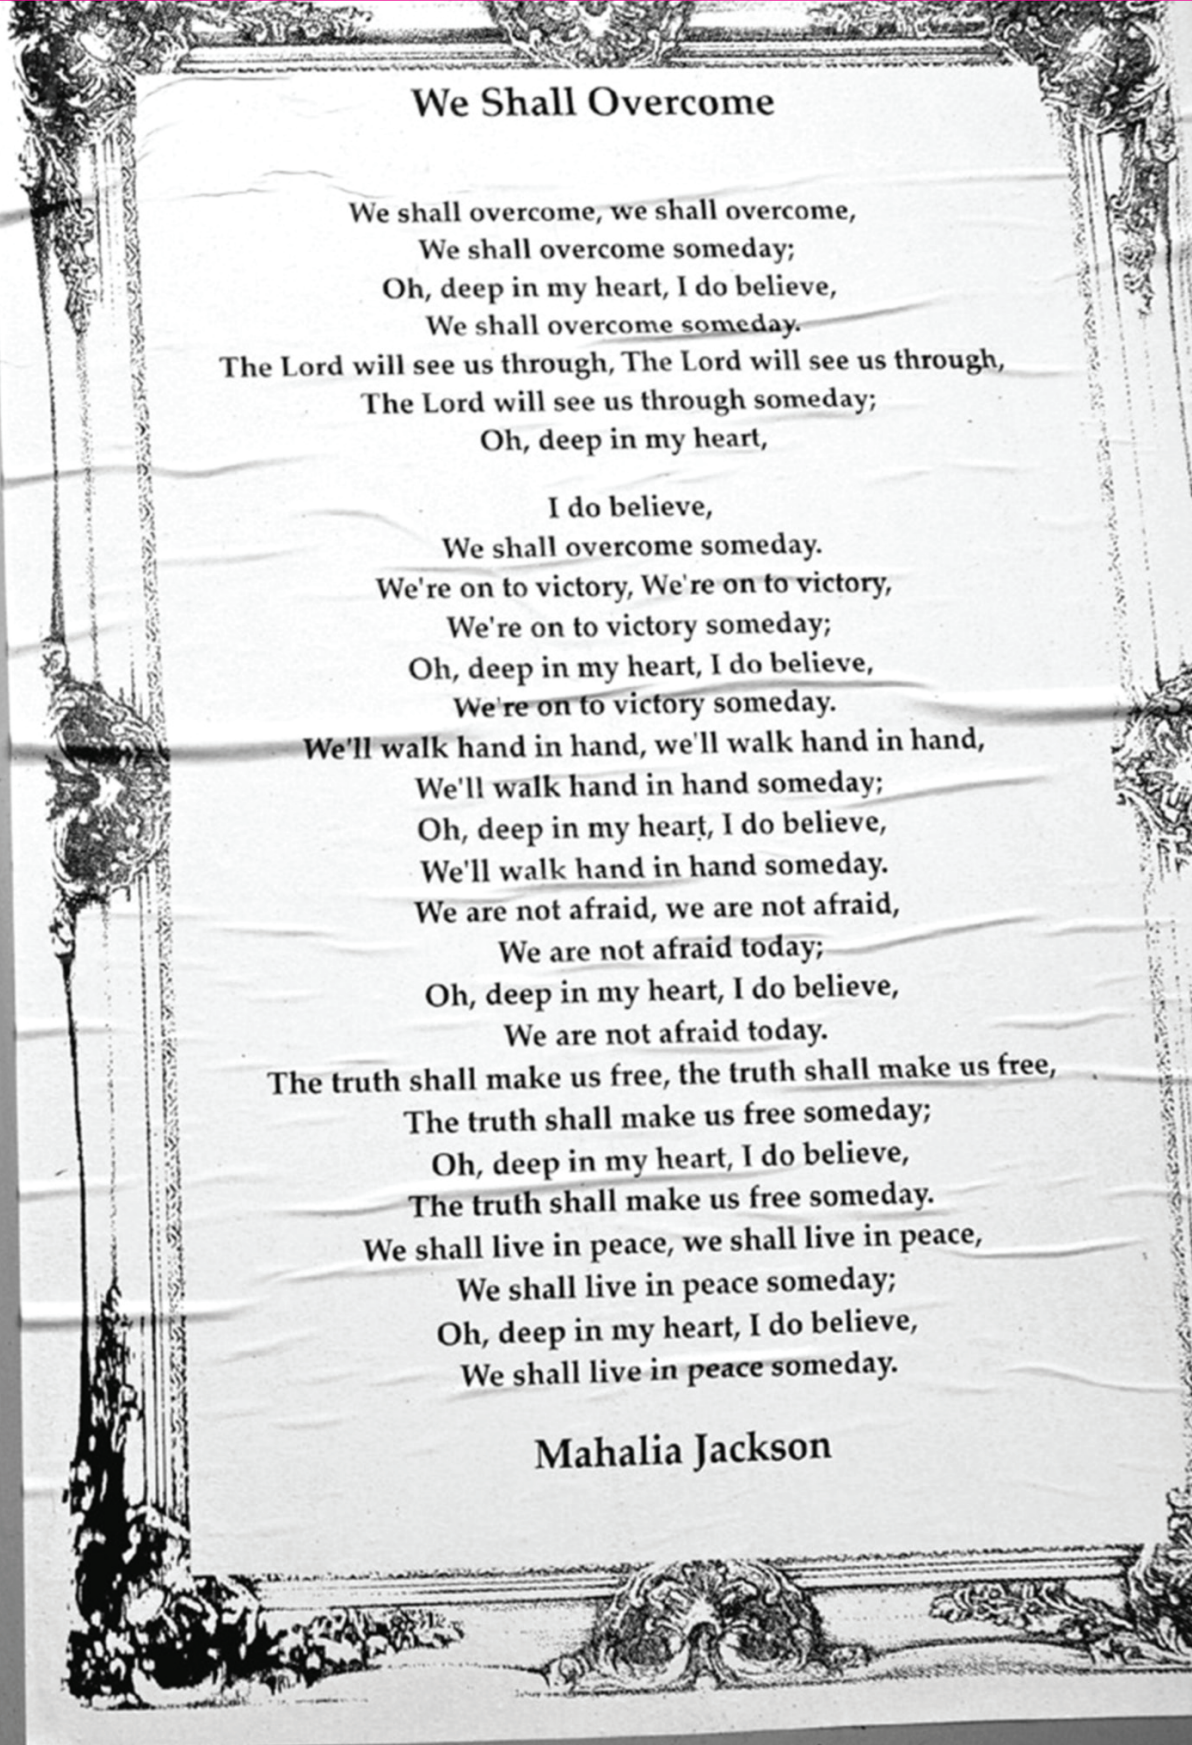 We Shall Overcome
We shall overcome, we shall overcome,
We shall overcome someday;
Oh, deep in my heart, I do believe,
We shall overcome someday.
The Lord will see us through, The Lord will see us through,
The Lord will see us through someday;
Oh, deep in my heart,
I do believe,
We shall overcome someday.
We're on to victory, We're on to victory,
We're on to victory someday;
Oh, deep in my heart, I do believe,
We're on to victory someday.
We'll walk hand in hand, we'll walk hand in hand,
We'll walk hand in hand someday;
Oh, deep in my heart, I do believe,
We'll walk hand in hand someday.
We are not afraid, we are not afraid,
We are not afraid today;
Oh, deep in my heart, I do believe,
We are not afraid today.
The truth shall make us free, the truth shall make us free,
The truth shall make us free someday;
Oh, deep in my heart, I do believe,
The truth shall make us free someday.
We shall live in peace, we shall live in peace,
We shall live in peace someday;
Oh, deep in my heart, I do believe,
We shall live in peace someday.
Mahalia Jackson